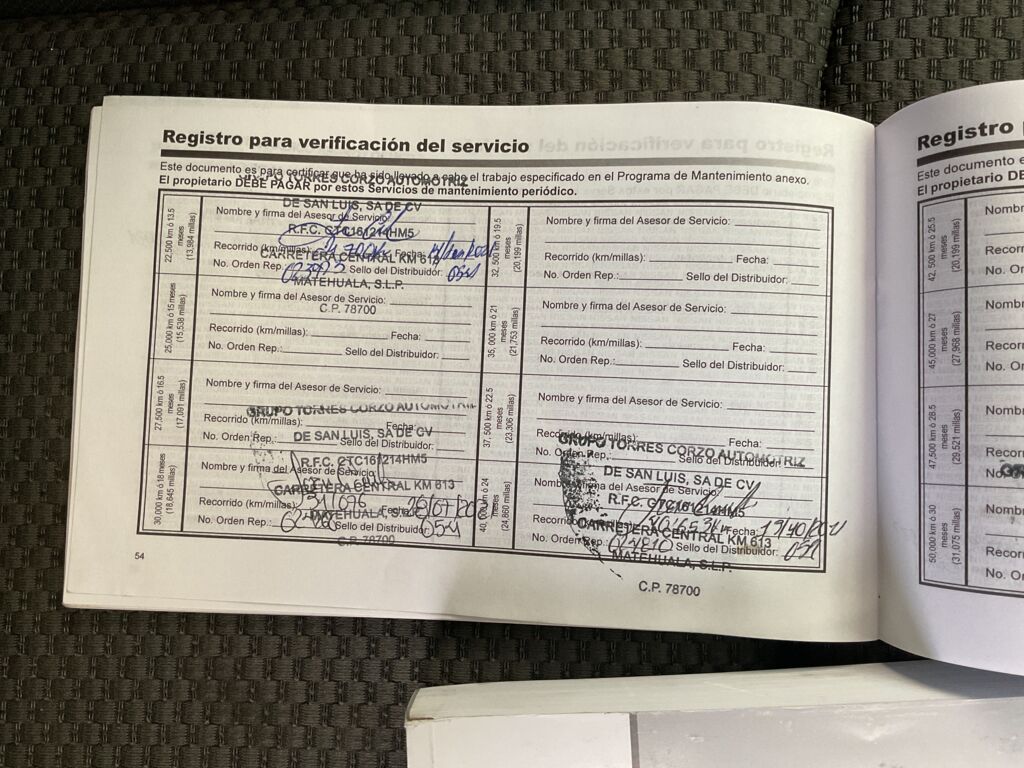 Registro para verificación del servicio
Este documento es para certificar que ha sido llevado a cabo el trabajo especificado en el Programa de Mantenimiento anexo.
El propietario DEBE PAGAR por estos Servicios de mantenimiento periódico.
GRUPO TORRES CORZO AUTOMOTRIZ
DE SAN LUIS, SA DE CV
R.F.C. GTC161214HM5
CARRETERA CENTRAL KM 613
MATEHUALA, S.L.P.
C.P. 78700
22,500 km ó 13.5
meses
(13,984 millas)
Nombre y firma del Asesor de Servicio:
Recorrido (km/millas): Fecha:
No. Orden Rep.: Sello del Distribuidor:
25,000 km ó 15 meses
(15,538 millas)
Nombre y firma del Asesor de Servicio:
Recorrido (km/millas): Fecha:
No. Orden Rep.: Sello del Distribuidor:
27,500 km ó 16.5
meses
(17,091 millas)
Nombre y firma del Asesor de Servicio:
Recorrido (km/millas): Fecha:
No. Orden Rep.: Sello del Distribuidor:
GRUPO TORRES CORZO AUTOMOTRIZ
DE SAN LUIS, SA DE CV
R.F.C. GTC161214HM5
CARRETERA CENTRAL KM 613
MATEHUALA, S.L.P.
C.P. 78700
30,000 km ó 18 meses
(18,645 millas)
Nombre y firma del Asesor de Servicio:
Recorrido (km/millas): Fecha:
No. Orden Rep.: Sello del Distribuidor:
32, 500 km ó 19.5
meses
(20,199 millas)
Nombre y firma del Asesor de Servicio:
Recorrido (km/millas): Fecha:
No. Orden Rep.: Sello del Distribuidor:
35, 000 km ó 21
meses
(21,753 millas)
Nombre y firma del Asesor de Servicio:
Recorrido (km/millas): Fecha:
No. Orden Rep.: Sello del Distribuidor:
37, 500 km ó 22.5
meses
(23,306 millas)
Nombre y firma del Asesor de Servicio:
Recorrido (km/millas): Fecha:
No. Orden Rep.: Sello del Distribuidor:
GRUPO TORRES CORZO AUTOMOTRIZ
DE SAN LUIS, SA DE CV
R.F.C. GTC161214HM5
CARRETERA CENTRAL KM 613
MATEHUALA, S.L.P.
C.P. 78700
40, 000 km ó 24
meses
(24,860 millas)
Nombre y firma del Asesor de Servicio:
Fecha:
Sello del Distribuidor:
54
Registro
Este documento e
El propietario DE
42, 500 km ó 25.5
meses
(20,199 millas)
Nombr
Recorr
No. O
45,000 km ó 27
meses
(27,968 millas)
Nombr
Recorr
No. Or
47,500 km ó 28.5
meses
(29,521 millas)
Nombr
Recorr
50,000 km ó 30
meses
(31,075 millas)
Nomb
Recor
No. Or